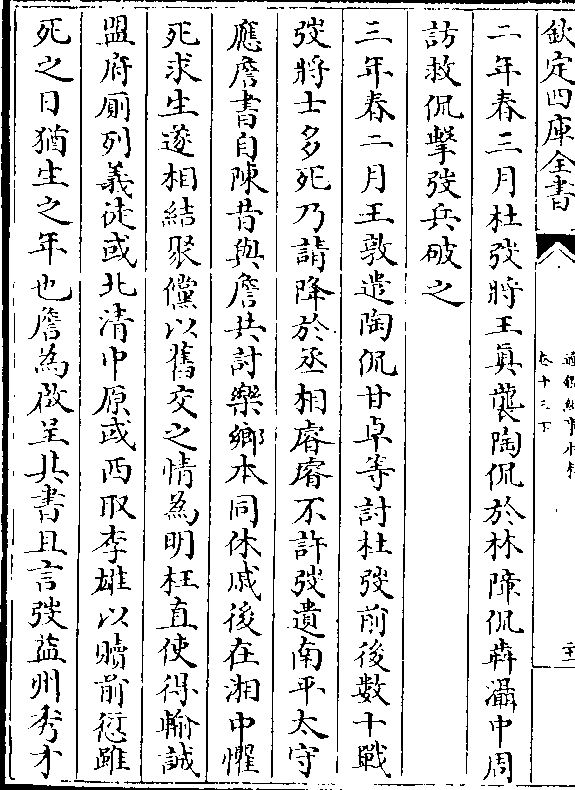 欽定四庫全書
二年春三月杜弢將王真襲陶侃於林障侃犇灄中周
訪救侃擊弢兵破之
三年春二月王敦遣陶侃甘卓等討杜弢前後數十戰
弢將士多死乃請降於丞相睿睿不許弢遺南平太守
應詹書自陳昔與詹共討樂鄉本同休戚後在湘中懼
死求生遂相結聚儻以舊交之情為明枉直使得輸誠
盟府厠列義徒或北清中原或西取李雄以贖前愆雖
死之日猶生之年也詹為啟呈其書且言弢益州秀才